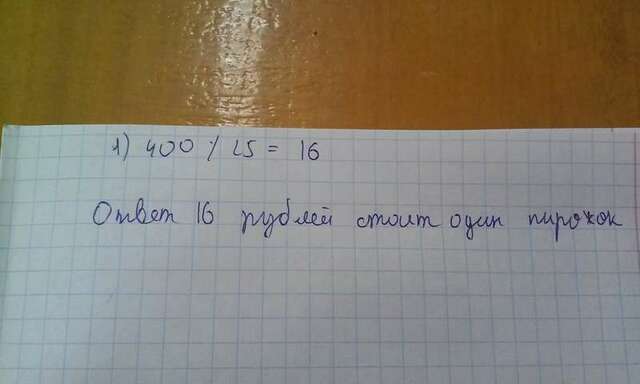 1) 400 / 25 = 16
Ответ 16 рублей стоит один пирожок